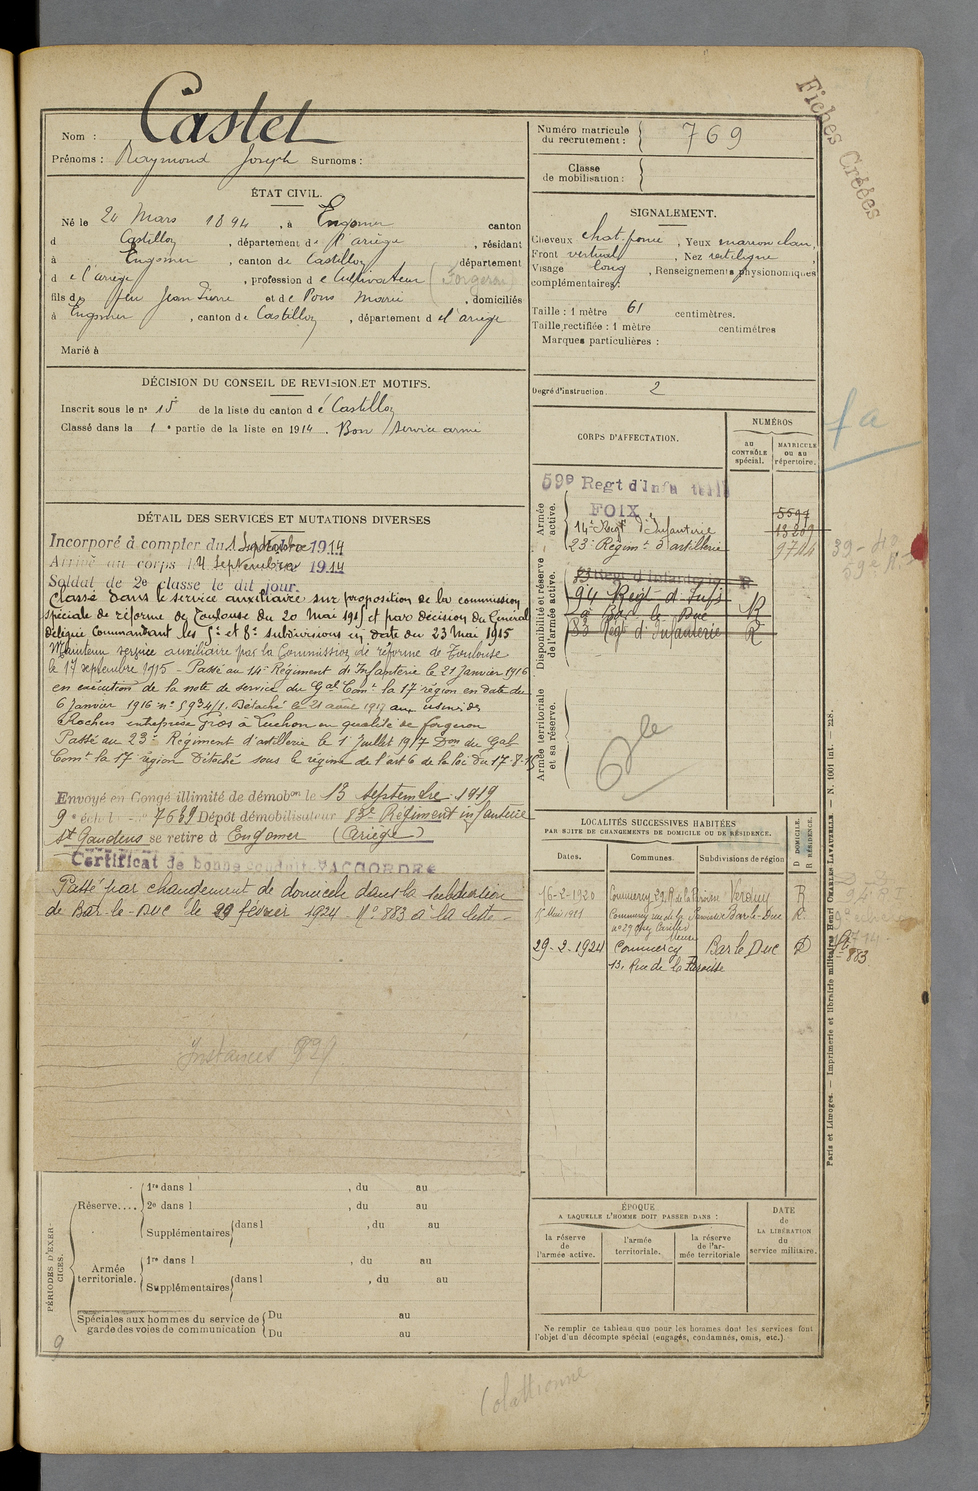 Fiches Créées
Castel
Nom :
Prénoms : Raymond Joseph Surnoms :
Numéro matricule
du recrutement : 769
Classe
de mobilisation :
ÉTAT CIVIL.
Né le 20 Mars 1894, à Engomer canton
d Castillon, département de l'ariège, résidant
à Engomer, canton de Castillon département
d e l'ariège, profession d e Cultivateur (Forgeron)
fils de feu Jean Pierre et de Pons Marie, domiciliés
à Engomer, canton de Castillon, département d el'ariège
Marié à
SIGNALEMENT.
Cheveux chat. foncé, Yeux marron clair,
Front vertical, Nez rectiligne
Visage long, Renseignements physionomiques
complémentaires :
Taille : 1 mètre 61 centimètres.
Taille rectifiée : 1 mètre centimètres
Marques particulières :
Degré d'instruction 2
DÉCISION DU CONSEIL DE REVISION ET MOTIFS.
Inscrit sous le no 15 de la liste du canton d e Castillon
Classé dans la 1e partie de la liste en 1914. Bon Service armé
CORPS D'AFFECTATION.
NUMÉROS
au
CONTRÔLE
spécial.
MATRICULE
ou au
répertoire.
Armée
active.
59e Regt d'Infanterie
FOIX
5597
14e Regt d'Infanterie 13209
23e Régimt d'artillerie 9744
39-40
59e R.I.
fa
Disponibilité et réserve
de l'armée active.
83 Régt d'Infanterie R
94 Regt d'Infie
à Bar le Duc R
83 Régt d'Infanterie R
Armée territoriale
et sa réserve.
DÉTAIL DES SERVICES ET MUTATIONS DIVERSES
Incorporé à compter du 1 Septembre 1914
Arrivé au corps le 4 Septembre 1914
Soldat de 2e classe le dit jour.
Classé dans le service auxiliaire sur proposition de la commission
spéciale de réforme de Toulouse du 20 Mai 1915 et par décision du Général
délégué Commandant les 5e et 8e subdivisions en date du 23 Mai 1915
Maintenu service auxiliaire par la Commission de réforme de Toulouse
le 17 septembre 1915 - Passé au 14e Régiment di Infanterie le 21 Janvier 1916
en exécution de la note de service du Gal Comt la 17 région en date du
6 Janvier 1916 no 5934/1. Détaché le 21 aout 1917 aux usines
Rochus entreprise Gros à Luchon en qualité de forgeron
Passé au 23e Régiment d'artillerie le 1 Juillet 1917 Don du Gal
Comt la 17 région Détaché sous le régime de l'art 6 de la loi du 17-8-15
Envoyé en Congé illimité de démobon le 13 septembre 1919
9e échelon no 7639 Dépôt démobilisateur 83e Régiment infanterie
St Gaudens se retire à Engomer (Ariège)
Certificat de bonne conduite ACCORDÉ
Passé par changement de domicile dans la subdivision
de Bar-le-Duc le 29 février 1924. No 883 à la liste
Instances P21
LOCALITÉS SUCCESSIVES HABITÉES
PAR SUITE DE CHANGEMENTS DE DOMICILE OU DE RÉSIDENCE.
Dates.
Communes.
Subdivisions de région
D DOMICILE.
R RÉSIDENCE.
16-2-1920 Commercy 29 R. de la Paroisse Verdun R
15 Mai 1921 Commercy rue de la Paroisse Bar-le-Duc R
no 29 chez
29-2-1924 Commercy Bar le Duc D
Meuse
13, Rue de la Paroisse
883
PÉRIODES D'EXERCICES.
Réserve....
1re dans l , du au
2e dans l , du au
Supplémentaires dans l , du au
Armée
territoriale.
1re dans l , du au
Supplémentaires dans l , du au
Spéciales aux hommes du service de
garde des voies de communication
Du au
Du au
ÉPOQUE
A LAQUELLE L'HOMME DOIT PASSER DANS :
la réserve
de
l'armée active.
l'armée
territoriale.
la réserve
de l'ar-
mée territoriale
DATE
de
LA LIBÉRATION
du
service militaire.
Ne remplir ce tableau que pour les hommes dont les services font
l'objet d'un décompte spécial (engagés, condamnés, omis, etc.).
Paris et Limoges. — Imprimerie et librairie militaires Henri CHARLES-LAVAUZELLE — N. 1001 int. — 228.
9
Collationné